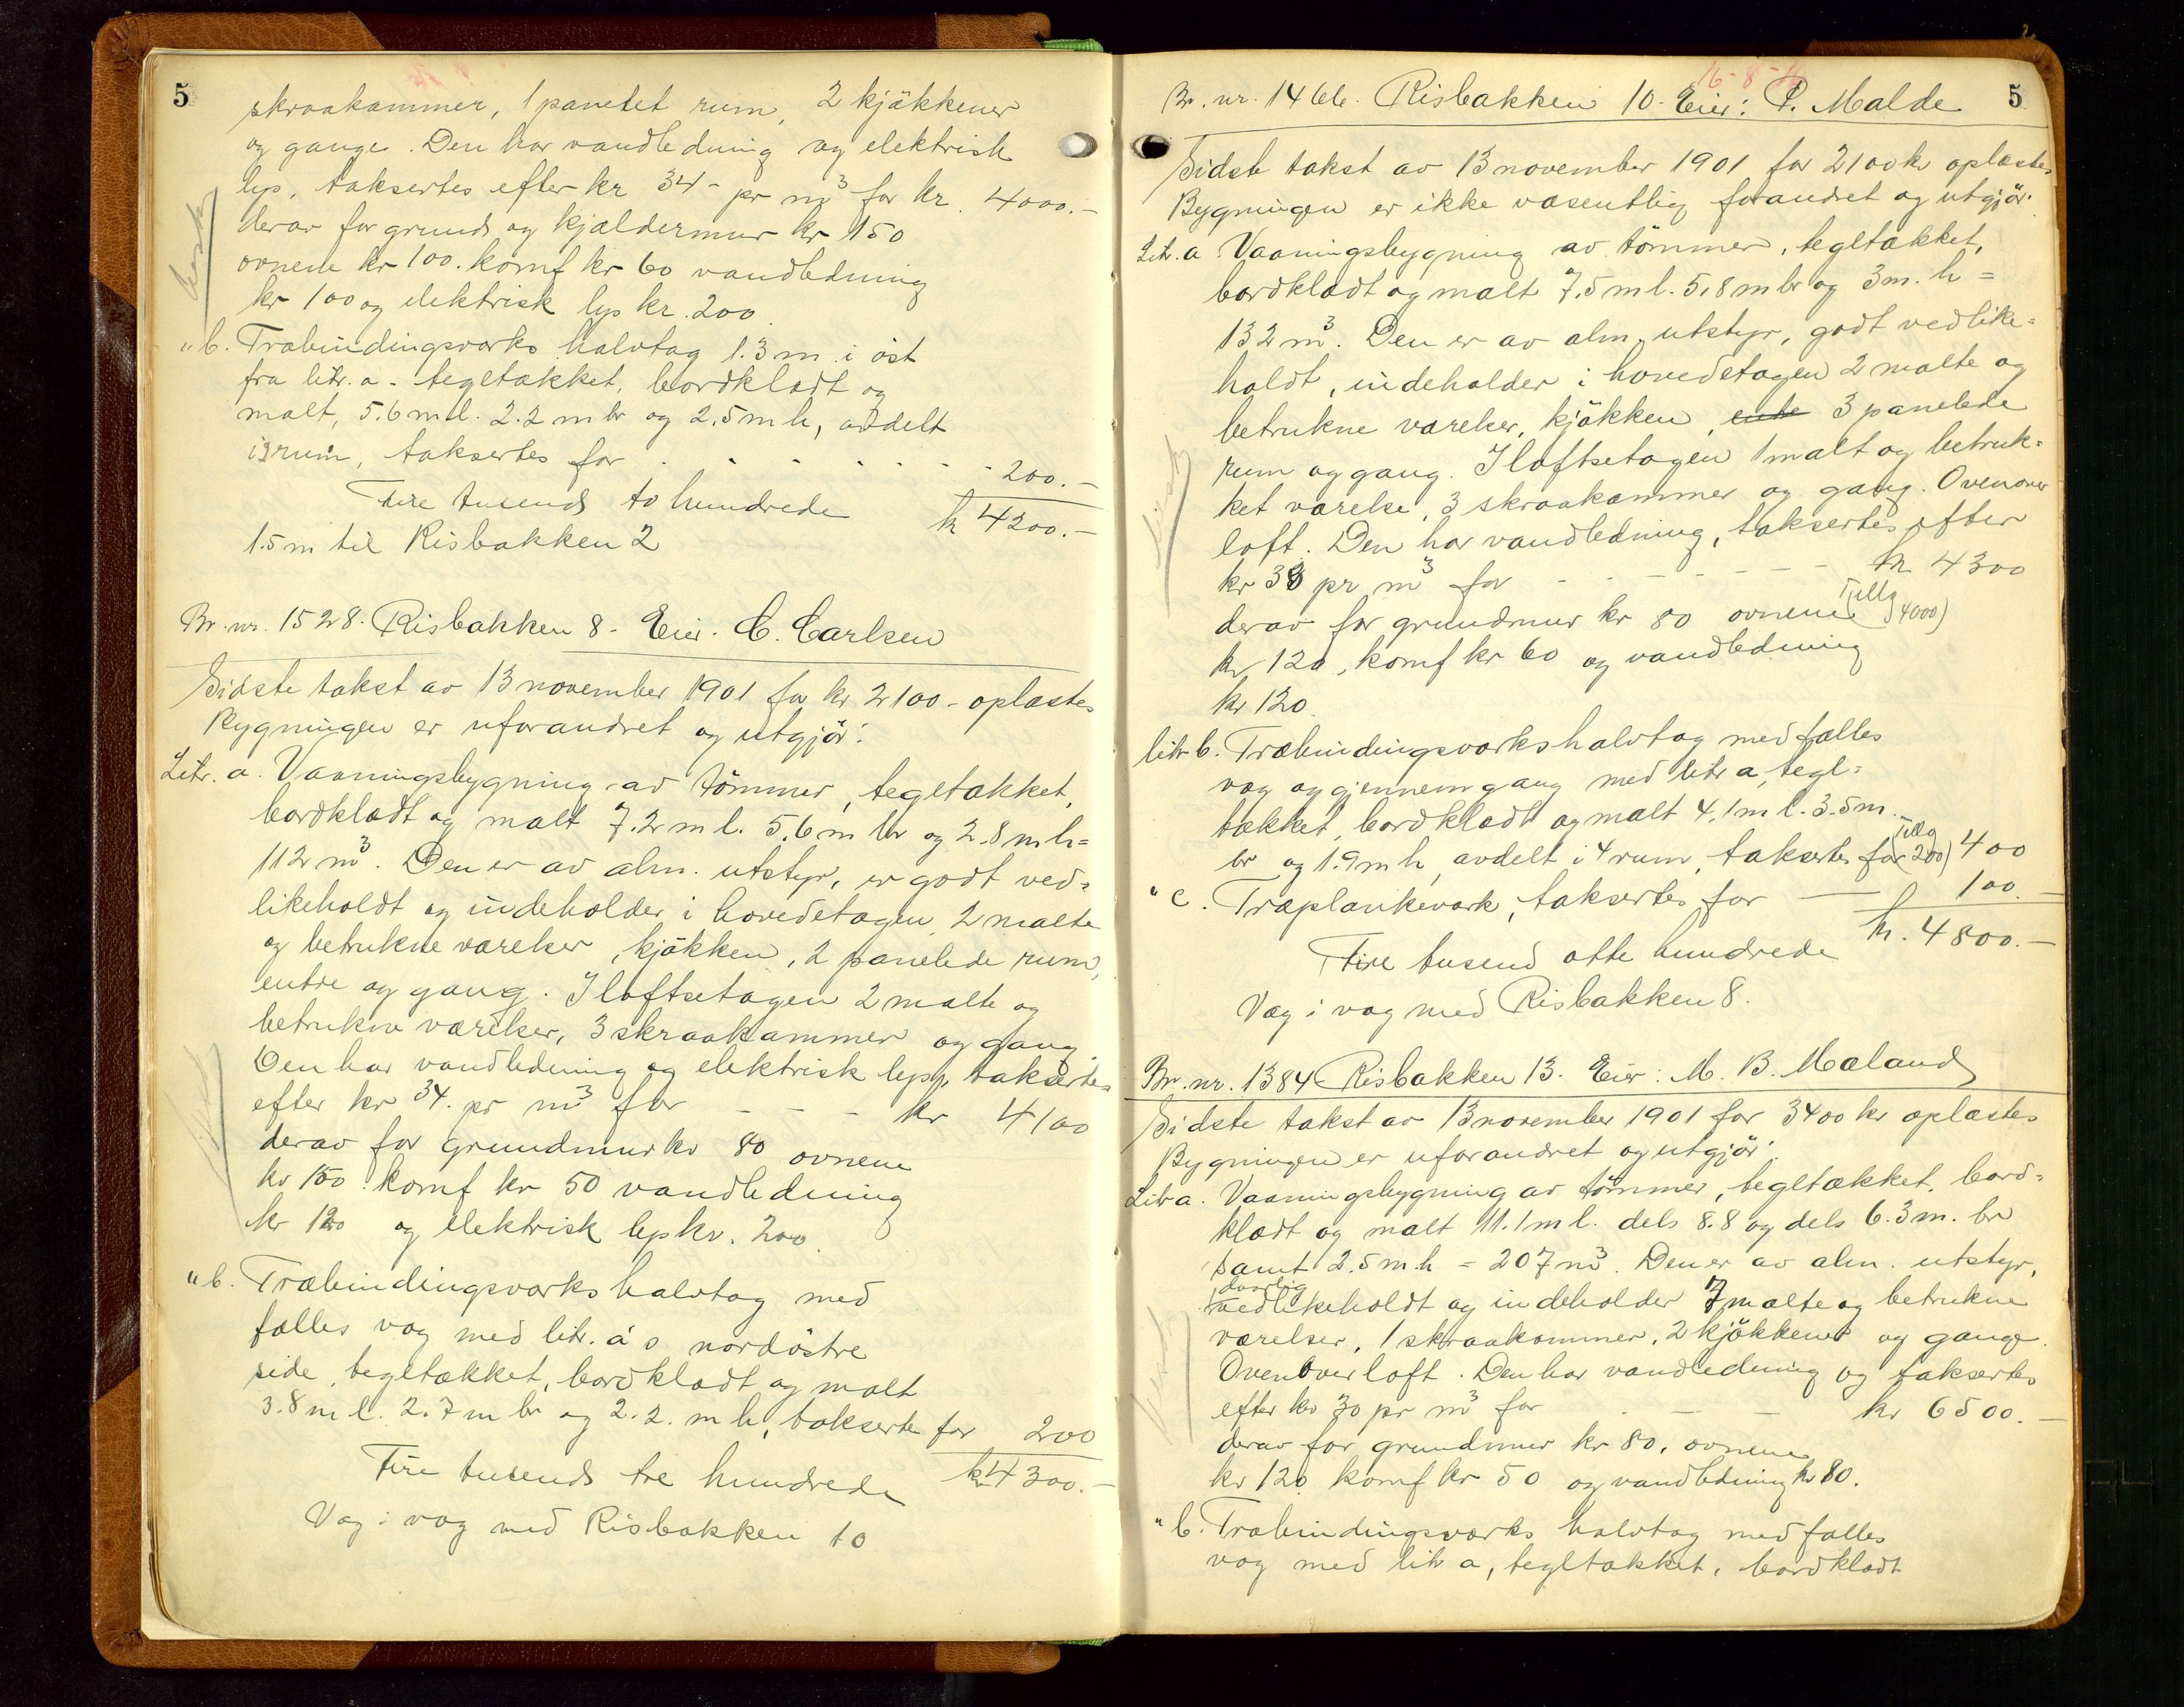 5
skraakammer, 1 panelet rum, 2 kjökkener
og gange. Den har vandledning og elektrisk
lys, taksertes efter kr 34- pr m³ for kr. 4000.-
derav for grund og kjældermur kr 150
ovnene kr 100. komf kr 60 vandledning
kr 100 og elektrisk lys kr. 200.
" b. Træbindingsværks halvtag 1.3 m i öst
fra litr. a - tegltækket, bordklædt og
malt, 5.6 m l. 2.2 m br og 2.5 m h, avdelt
i 3 rum, taksertes for - - - - - - 200.-
Fire tusend to hundrede kr 4200.-
1.5 m til Risbakken 2
Br. nr. 1528. Risbakken 8 - Eier. C. Carlsen
Sidste takst av 13 november 1901 for kr 2100 - oplæstes
Bygningen er uforandret og utgjör:
Litr. a. Vaaningsbygning av tömmer, tegltækket,
bordklædt og malt 7.2 m l. 5.6 m br og 2.8 m h =
112 m³. Den er av alm. utstyr, er godt ved=
likeholdt og indeholder i hovedetagen 2 malte
og betrukne værelser, kjökken, 2 panelede rum,
entre og gang. I loftsetagen 2 malte og
betrukne værelser, 3 skraakammer og gang
Den har vandledning og elektrisk lys, taksertes
efter kr 34. pr m³ for - - - kr 4100
derav for grundmur kr 80 ovnene
kr 100. komf kr 50 vandledning
kr 120 og elektrisk lys kr. 200.
" b. Træbindingsværks halvtag med
fælles væg med litr. a's nordöstre
side, tegltækket, bordklædt og malt
3.8 m l. 2.7 m br og 2.2. m h, takserte for 200
Fire tusend tre hundrede kr 4300.-
Væg i væg med Risbakken 10
16-8-
Br. nr. 1466. Risbakken 10 - Eier: P. Malde 5
Sidste takst av 13 november 1901 for 2100 kr oplæstes
Bygningen er ikke væsentlig forandret og utgjör:
Litr. a Vaaningsbygning av tömmer, tegltækket,
bordklædt og malt 7.5 m l. 5.8 m br og 3 m. h =
132 m³. Den er av alm. utstyr, godt vedlike=
holdt, indeholder i hovedetagen 2 malte og
betrukne værelser, kjökken, 3 panelede
rum og gang. I loftsetagen 1 malt og betruk=
ket værelse, 3 skraakammer og gang. Ovenover
loft. Den har vandledning, taksertes efter
kr 33 pr m³ for - - - - - kr 4300
Tillg
derav for grundmur kr 80 ovnene (4000)
kr 120, komf kr 60 og vandledning
kr 120.
litr b. Træbindingsværks halvtag med fælles
væg og gjennemgang med litr a, tegl=
tækket, bordklædt og malt 4.1 m l. 3.5 m
Tillg
br og 1.9 m h, avdelt i 4 rum, taksertes for (200) 400
" c. Træplankeverk, taksertes for — 100.-
Fire tusend otte hundrede kr. 4800.-
Væg i væg med Risbakken 8.
Br. nr. 1384 Risbakken 13. Eier: M. B. Mæland
Sidste takst av 13 november 1901 for 3400 kr oplæstes
Bygningen er uforandret og utgjör:
Litr a. Vaaningsbygning av tömmer, tegltækket, bord=
klædt og malt 11.1 m l. dels 8.8 og dels 6.3 m. br
samt 2.5 m. h = 207 m³. Den er av alm. utstyr,
daarlig
vedlikeholdt og indeholder 7 malte og betrukne
værelser, 1 skraakammer, 2 kjökkener og gange.
Ovenover loft. Den har vandledning og taksertes
efter kr 30 pr m³ for - - - kr 6500.-
derav for grundmur kr 80, ovnene
kr 120 komf kr 50 og vandledning kr 80.
" b. Træbindingsværks halvtag med fælles
væg med litr a, tegltækket, bordklædt